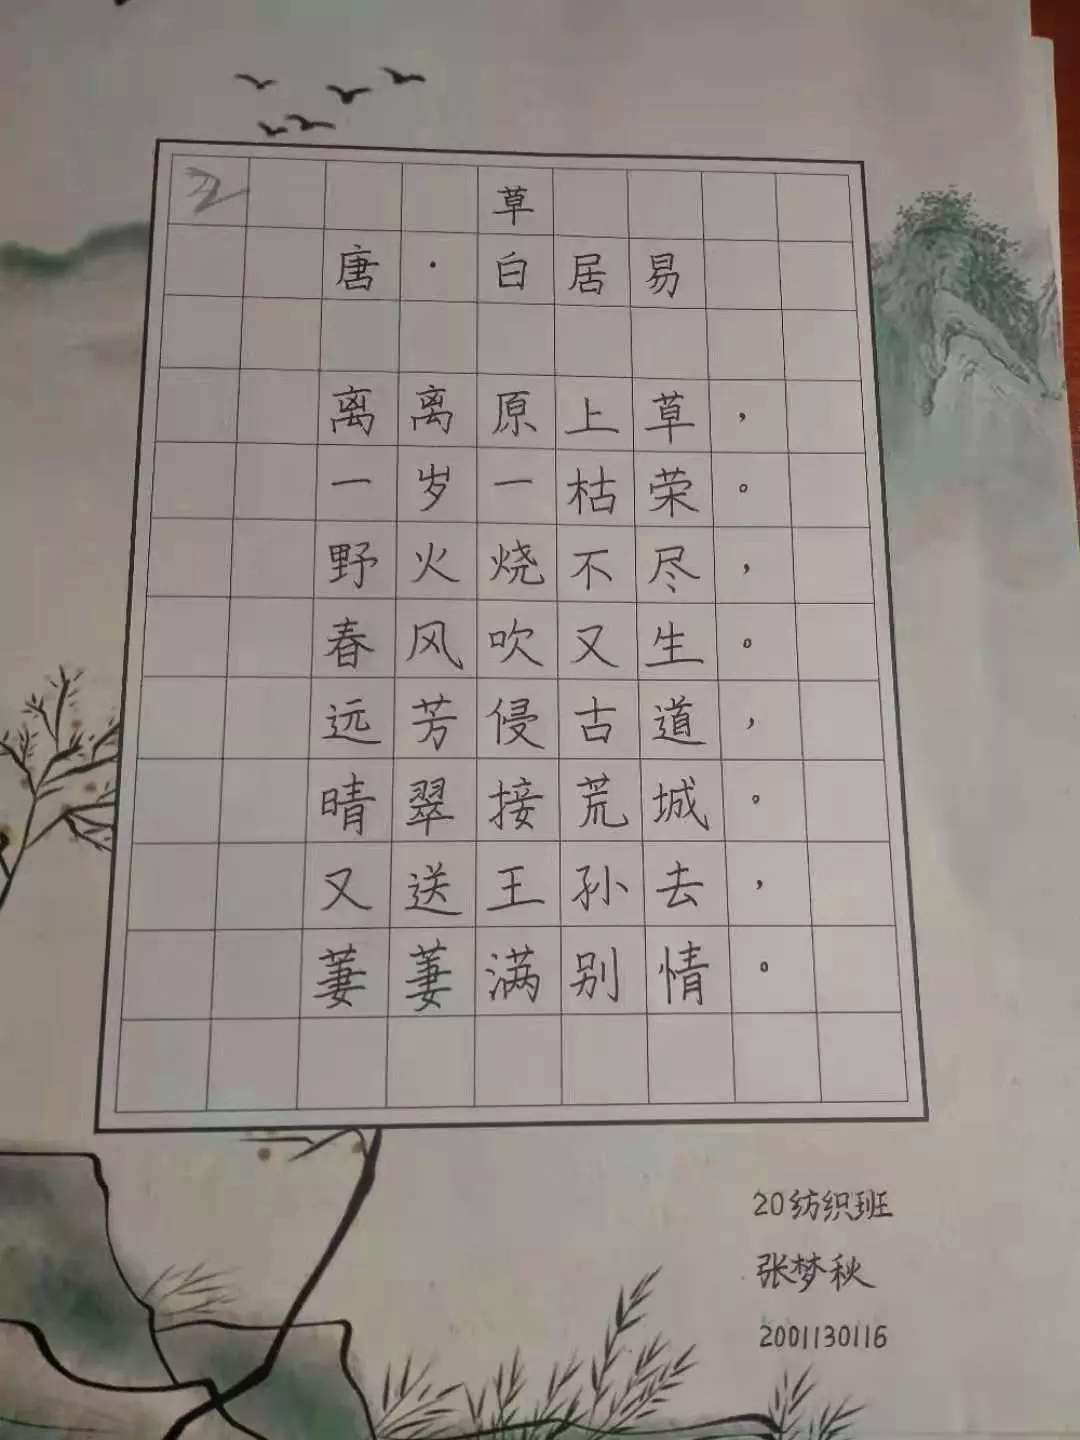 草
唐·白居易
离离原上草，
一岁一枯荣。
野火烧不尽，
春风吹又生。
远芳侵古道，
晴翠接荒城。
又送王孙去，
萋萋满别情。
20纺织班
张梦秋
2001130116